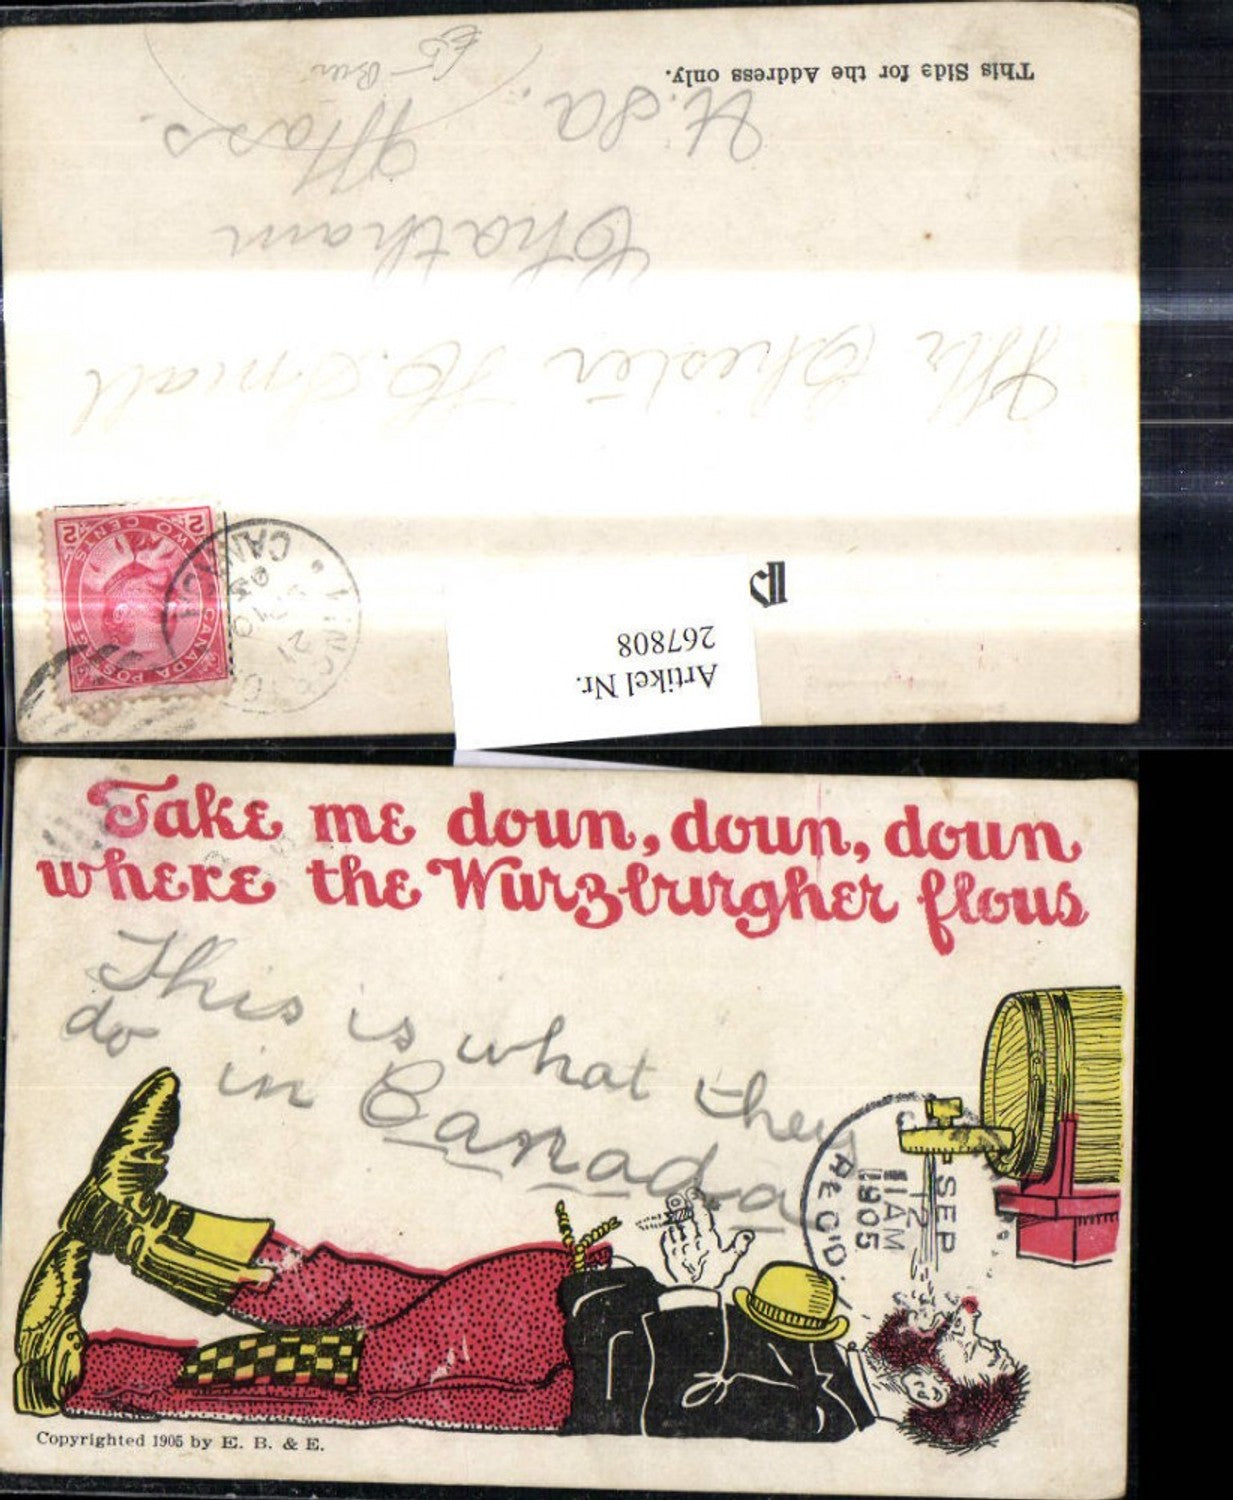 This Side for the Address only.
Mr Chester H. Small
Chatham
Mass.
U.Sa.
CANADA POSTAGE
TWO CENTS
2 2
CANADA
Artikel Nr.
267808
Take me doun, doun, doun
where the Würzburgher flous
This is what they
do in Canada
REC'D.
SEP
12
11AM
1905
Copyrighted 1905 by E. B. & E.